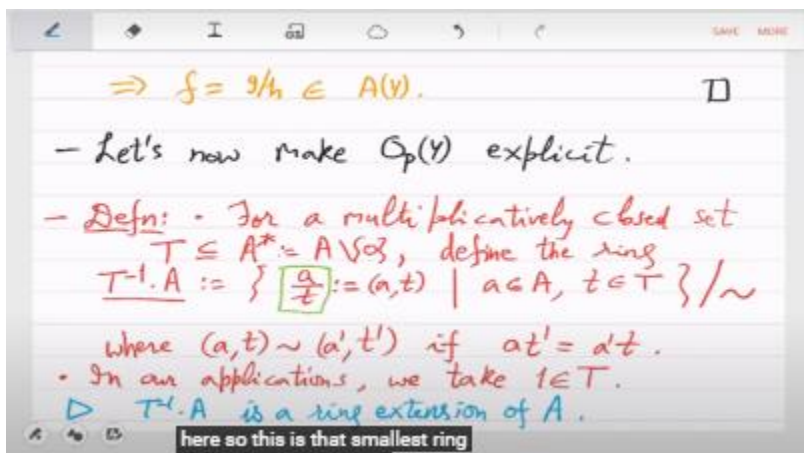 SAVE MORE
⇒ f = g/h ∈ A(Y).
- Let's now make O_p(Y) explicit.
- Defn: · For a multiplicatively closed set
T ⊆ A* := A\{0}, define the ring
T⁻¹·A := { a/t := (a,t) | a∈A, t∈T }/~
where (a,t) ~ (a',t') if at' = a't.
· In our applications, we take 1∈T.
▷ T⁻¹·A is a ring extension of A.
here so this is that smallest ring